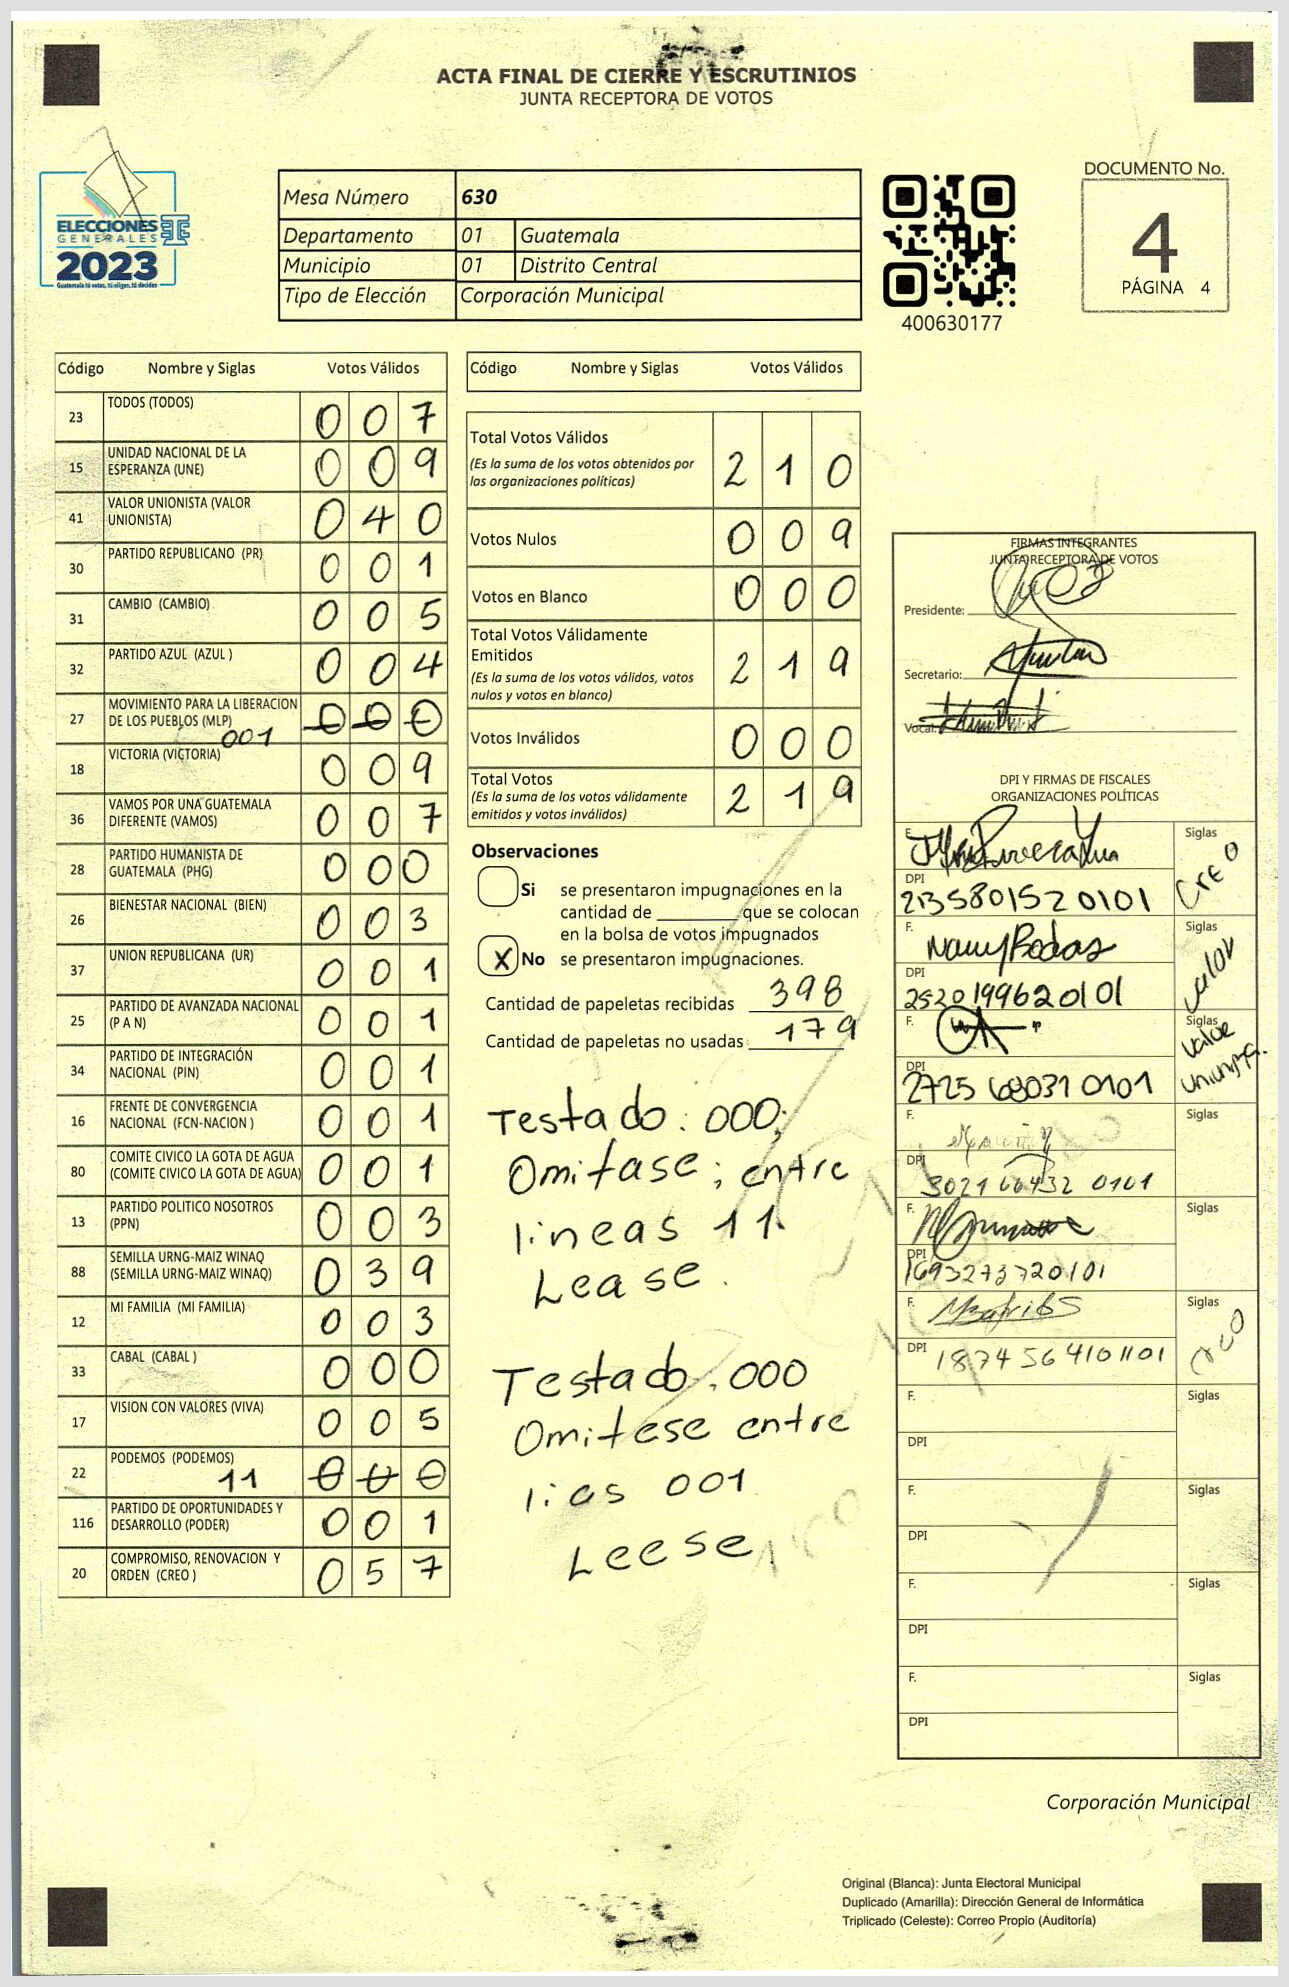 ACTA FINAL DE CIERRE Y ESCRUTINIOS
JUNTA RECEPTORA DE VOTOS
ELECCIONES
GENERALES
2023
Guatemala tú votas, tú eliges, tú decides
Mesa Número 630
Departamento 01 Guatemala
Municipio 01 Distrito Central
Tipo de Elección Corporación Municipal
400630177
DOCUMENTO No.
4
PÁGINA 4
Código Nombre y Siglas Votos Válidos
23 TODOS (TODOS) 0 0 7
15 UNIDAD NACIONAL DE LA ESPERANZA (UNE) 0 0 9
41 VALOR UNIONISTA (VALOR UNIONISTA) 0 4 0
30 PARTIDO REPUBLICANO (PR) 0 0 1
31 CAMBIO (CAMBIO) 0 0 5
32 PARTIDO AZUL (AZUL ) 0 0 4
27 MOVIMIENTO PARA LA LIBERACION DE LOS PUEBLOS (MLP) 0 0 0
001
18 VICTORIA (VICTORIA) 0 0 9
36 VAMOS POR UNA GUATEMALA DIFERENTE (VAMOS) 0 0 7
28 PARTIDO HUMANISTA DE GUATEMALA (PHG) 0 0 0
26 BIENESTAR NACIONAL (BIEN) 0 0 3
37 UNION REPUBLICANA (UR) 0 0 1
25 PARTIDO DE AVANZADA NACIONAL (P A N) 0 0 1
34 PARTIDO DE INTEGRACIÓN NACIONAL (PIN) 0 0 1
16 FRENTE DE CONVERGENCIA NACIONAL (FCN-NACION ) 0 0 1
80 COMITE CIVICO LA GOTA DE AGUA (COMITE CIVICO LA GOTA DE AGUA) 0 0 1
13 PARTIDO POLITICO NOSOTROS (PPN) 0 0 3
88 SEMILLA URNG-MAIZ WINAQ (SEMILLA URNG-MAIZ WINAQ) 0 3 9
12 MI FAMILIA (MI FAMILIA) 0 0 3
33 CABAL (CABAL ) 0 0 0
17 VISION CON VALORES (VIVA) 0 0 5
22 PODEMOS (PODEMOS) 0 0 0
11
116 PARTIDO DE OPORTUNIDADES Y DESARROLLO (PODER) 0 0 1
20 COMPROMISO, RENOVACION Y ORDEN (CREO ) 0 5 7
Código Nombre y Siglas Votos Válidos
Total Votos Válidos 2 1 0
(Es la suma de los votos obtenidos por
las organizaciones políticas)
Votos Nulos 0 0 9
Votos en Blanco 0 0 0
Total Votos Válidamente
Emitidos 2 1 9
(Es la suma de los votos válidos, votos
nulos y votos en blanco)
Votos Inválidos 0 0 0
Total Votos 2 1 9
(Es la suma de los votos válidamente
emitidos y votos inválidos)
Observaciones
Si se presentaron impugnaciones en la
cantidad de ________ que se colocan
en la bolsa de votos impugnados
X No se presentaron impugnaciones.
Cantidad de papeletas recibidas 398
Cantidad de papeletas no usadas 179
Testado: 000;
Omitase; entre
lineas 11.
Lease.
Testado. 000
Omitese entre
lias 001
Leese.
FIRMAS INTEGRANTES
JUNTA RECEPTORA DE VOTOS
Presidente:
Secretario:
Vocal:
DPI Y FIRMAS DE FISCALES
ORGANIZACIONES POLÍTICAS
F. Siglas
Creo
DPI
2135801520101
F. Nancy Rodas Siglas
Valor
DPI
2520199620101
F. Siglas
Valor
Unionista.
DPI
2725 68031 0101
F. Siglas
DPI
3021 66432 0101
F. Siglas
DPI
1693273720101
F. Siglas
Creo
DPI 1874 56410 1101
F. Siglas
DPI
F. Siglas
DPI
F. Siglas
DPI
F. Siglas
DPI
Corporación Municipal
Original (Blanca): Junta Electoral Municipal
Duplicado (Amarilla): Dirección General de Informática
Triplicado (Celeste): Correo Propio (Auditoría)